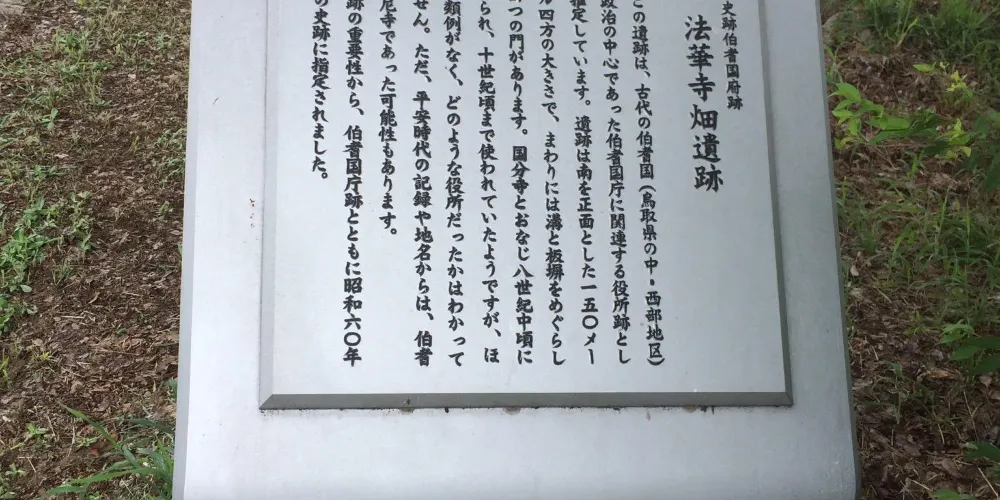 史跡伯耆国府跡
法華寺畑遺跡
この遺跡は、古代の伯耆国(鳥取県の中・西部地区)
政治の中心であった伯耆国庁に関連する役所跡とし
推定しています。遺跡は南を正面とした一五〇メー
四方の大きさで、まわりには溝と板塀をめぐらし
つの門があります。国分寺とおなじ八世紀中頃に
られ、十世紀頃まで使われていたようですが、ほ
類例がなく、どのような役所だったかはわかって
せん。ただ、平安時代の記録や地名からは、伯耆
尼寺であった可能性もあります。
跡の重要性から、伯耆国庁跡とともに昭和六〇年
の史跡に指定されました。